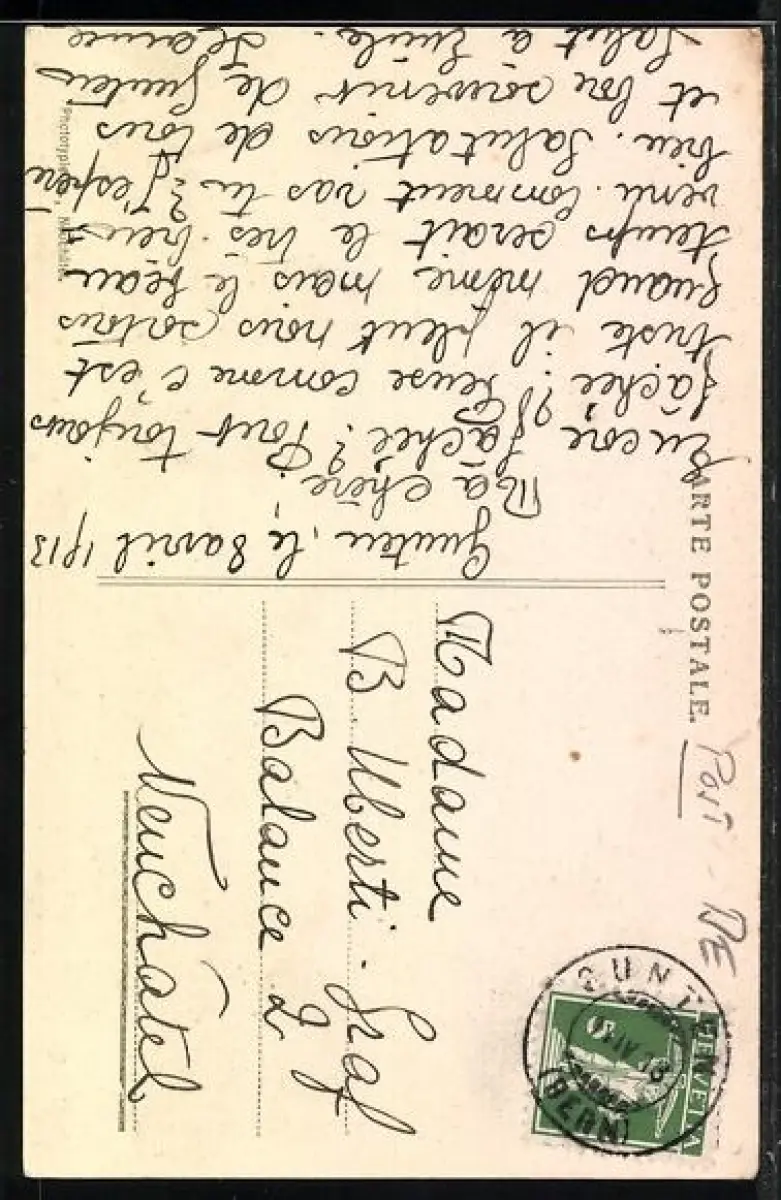 CARTE POSTALE.
Post - BE
Gunten, le 8 avril 1913
Ma chère,
Encore fâchée? Pour toujours
fâchée?? Seuse comme c'est
triste! il pleut nous sortons
quand même mais le beau
temps serait le très bien-
venu. Comment vas tu? J'espère
bien. Salutations de tous
et bon souvenir de Gunten
Salut à Emile. Jeanne
Madame
B. Uberti-Graf
Balance 2
Neuchâtel
GUNTEN
(BERN)
HELVETIA
5